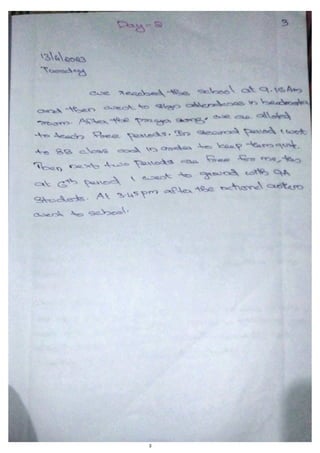 Day-2
3
13/6/2023
Tuesday
we reached the school at 9.15 Am
and then went to sign attendance in headmaster
room. After the prayer song, we are alloted
to teach free periods. In second period I went
to 8B class and in order to keep them quit.
Then next two periods are free for me, then
at 6th period I went to ground with 9A
Students. At 3.45pm after the national
went to school.
2